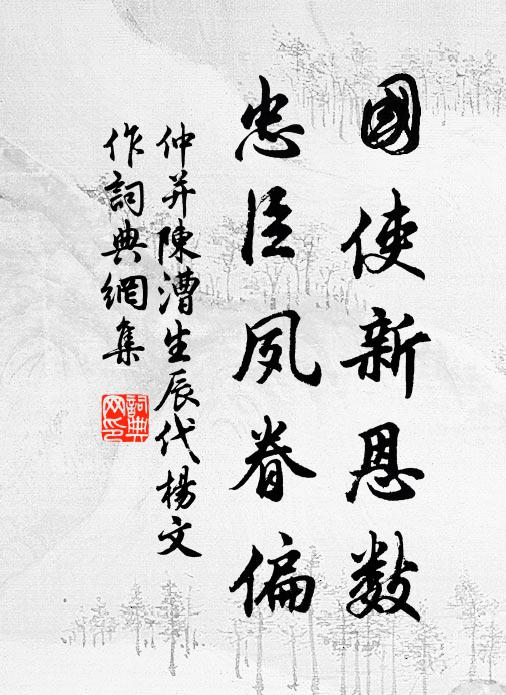 國使新恩數
忠臣夙眷偏
仲并陳漕生辰代楊文
作詞典網集
詞典网印